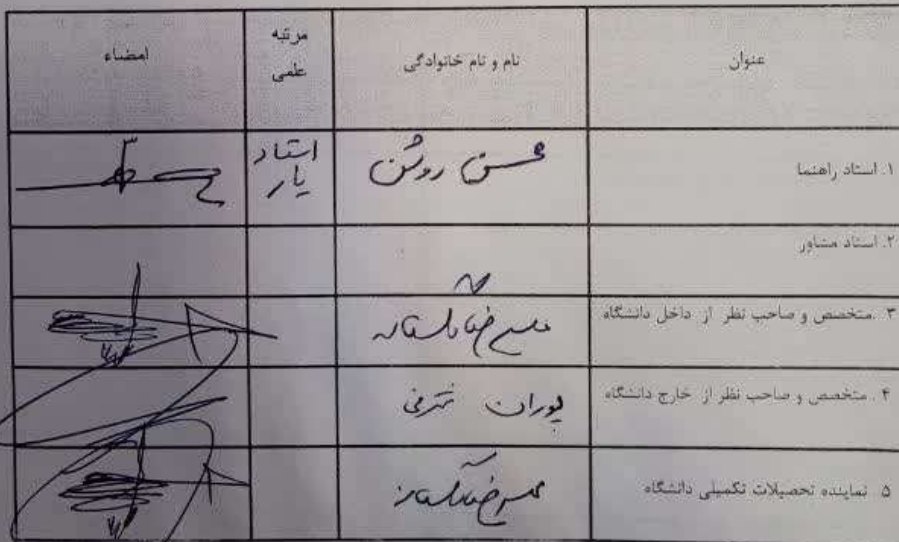 عنوان نام و نام خانوادگی مرتبه علمی امضاء
۱. استاد راهنما محسن روشن استاد یار
۲. استاد مشاور
۳. متخصص و صاحب نظر از داخل دانشگاه
۴. متخصص و صاحب نظر از خارج دانشگاه پوران
۵. نماینده تحصیلات تکمیلی دانشگاه